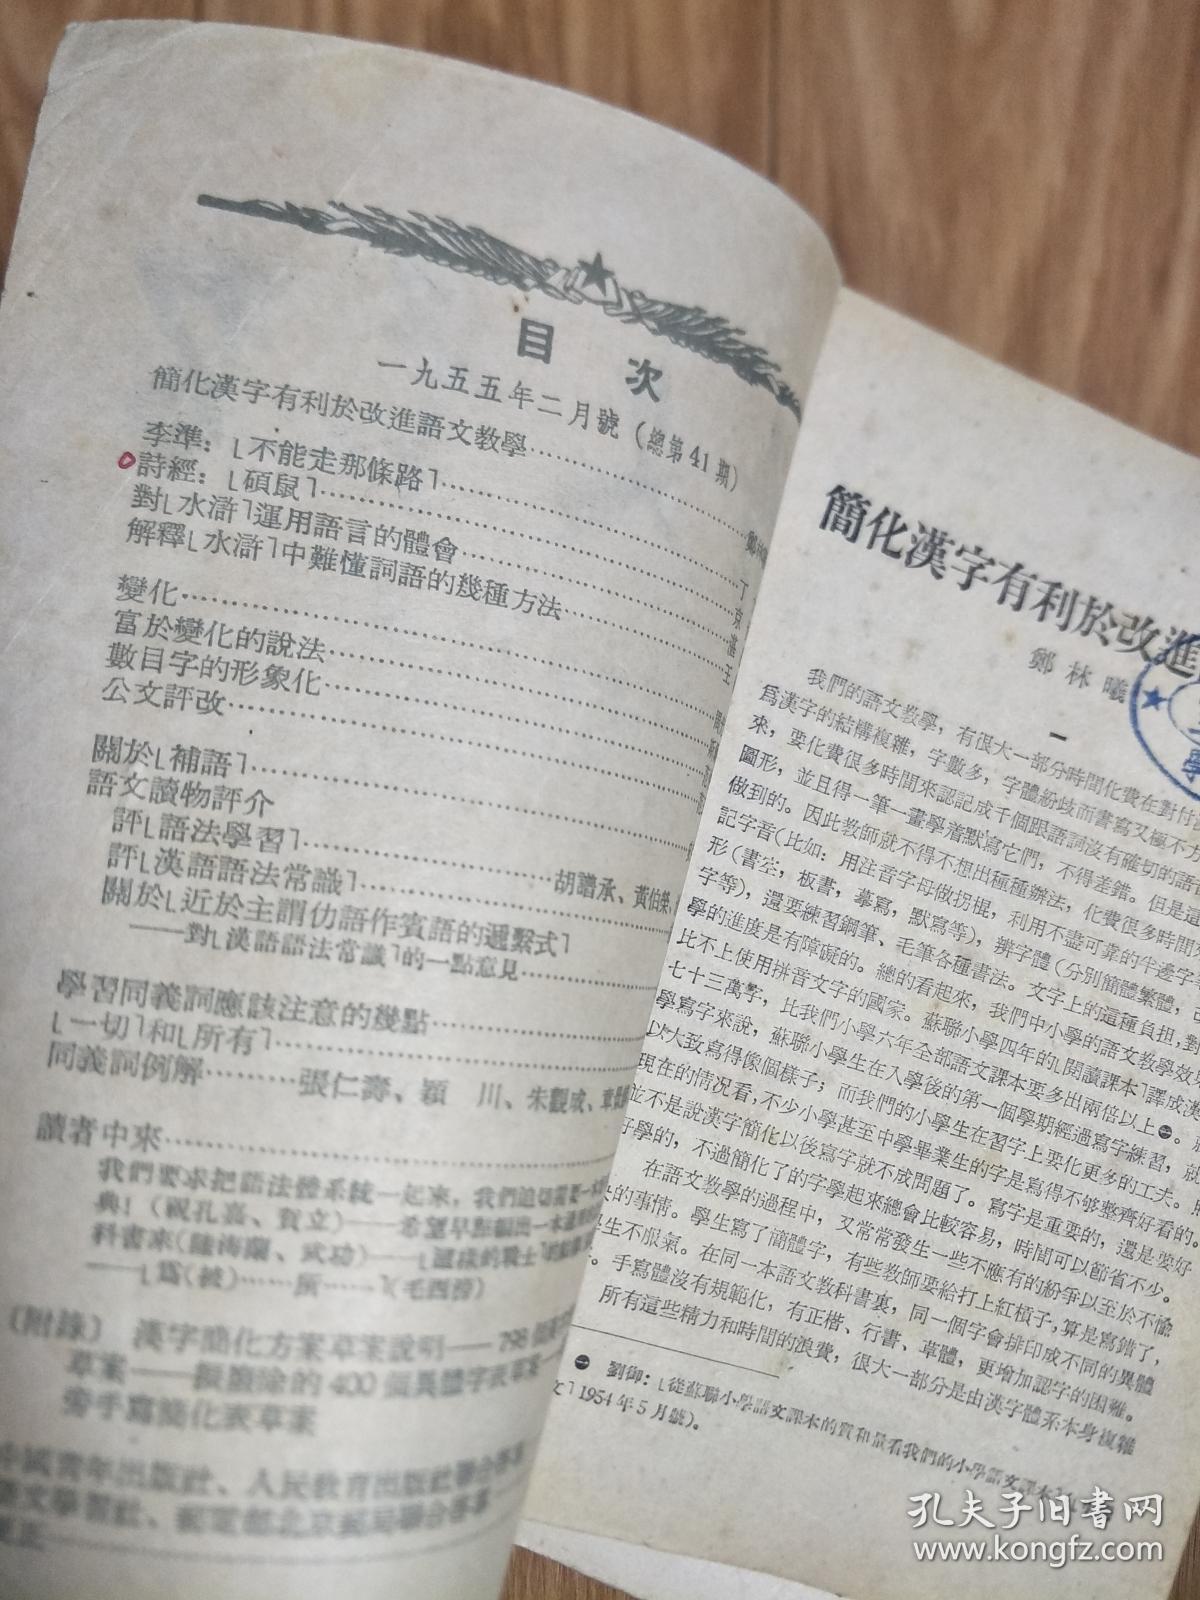 目 次
一九五五年二月號（總第41期）
簡化漢字有利於改進語文教學
李準：⌊不能走那條路⌉
詩經：⌊碩鼠⌉
對⌊水滸⌉運用語言的體會
解釋⌊水滸⌉中難懂詞語的幾種方法
變化
富於變化的說法
數目字的形象化
公文評改
關於⌊補語⌉
語文讀物評介
評⌊語法學習⌉
評⌊漢語語法常識⌉ 胡譜承、黃伯榮
關於⌊近於主謂仂語作賓語的遞繫式⌉
——對⌊漢語語法常識⌉的一點意見
學習同義詞應該注意的幾點
⌊一切⌉和⌊所有⌉
同義詞例解 張仁壽、穎 川、朱觀成、
讀者中來
我們要求把語法體系統一起來，我們迫切需要一本
典！（祝孔嘉、賀立）——希望早點編出一本
⌊爲(被)……所……⌉（毛西旁）
（附錄） 漢字簡化方案草案說明——798個
草案——擬廢除的400個異體字表草案
旁手寫簡化表草案
中國青年出版社、人民教育出版社聯合
簡化漢字有利於改進
鄭林曦
一
我們的語文教學，有很大一部分時間化費在對付
爲漢字的結構複雜，字數多，字體紛歧而書寫又極不方
來，要化費很多時間來認記成千個跟語詞沒有確切的語
圖形，並且得一筆一畫學着默寫它們，不得差錯。但是這
做到的。因此教師就不得不想出種種辦法，化費很多時間
記字音（比如：用注音字母做拐棍，利用不盡可靠的半邊字
形（書空，板書，摹寫，默寫等），辨字體（分別簡體繁體，
字等），還要練習鋼筆、毛筆各種書法。文字上的這種負担，對
學的進度是有障礙的。總的看起來，我們中小學的語文教學效
比不上使用拼音文字的國家。蘇聯小學四年的⌊閱讀課本⌉譯成漢
七十三萬字，比我們小學六年全部語文課本要多出兩倍以上㊀。
學寫字來說，蘇聯小學生在入學後的第一個學期經過寫字練習，就
以大致寫得像個樣子；而我們的小學生在習字上要化更多的工夫。
現在的情况看，不少小學甚至中學畢業生的字是寫得不够整齊好看的。
並不是說漢字簡化以後寫字就不成問題了。寫字是重要的，還是要好
好學的，不過簡化了的字學起來總會比較容易，時間可以節省不少。
在語文教學的過程中，又常常發生一些不應有的紛爭以至於不愉
快的事情。學生寫了簡體字，有些教師要給打上紅槓子，算是寫錯了，
學生不服氣。在同一本語文教科書裏，同一個字會排印成不同的異體
。手寫體沒有規範化，有正楷、行書、草體，更增加認字的困難。
所有這些精力和時間的浪費，很大一部分是由漢字體系本身複雜
㊀ 劉御：⌊從蘇聯小學語文課本的質和量看我們的小學語文課本⌉
文⌉1954年5月號）。
孔夫子旧书网
www.kongfz.com